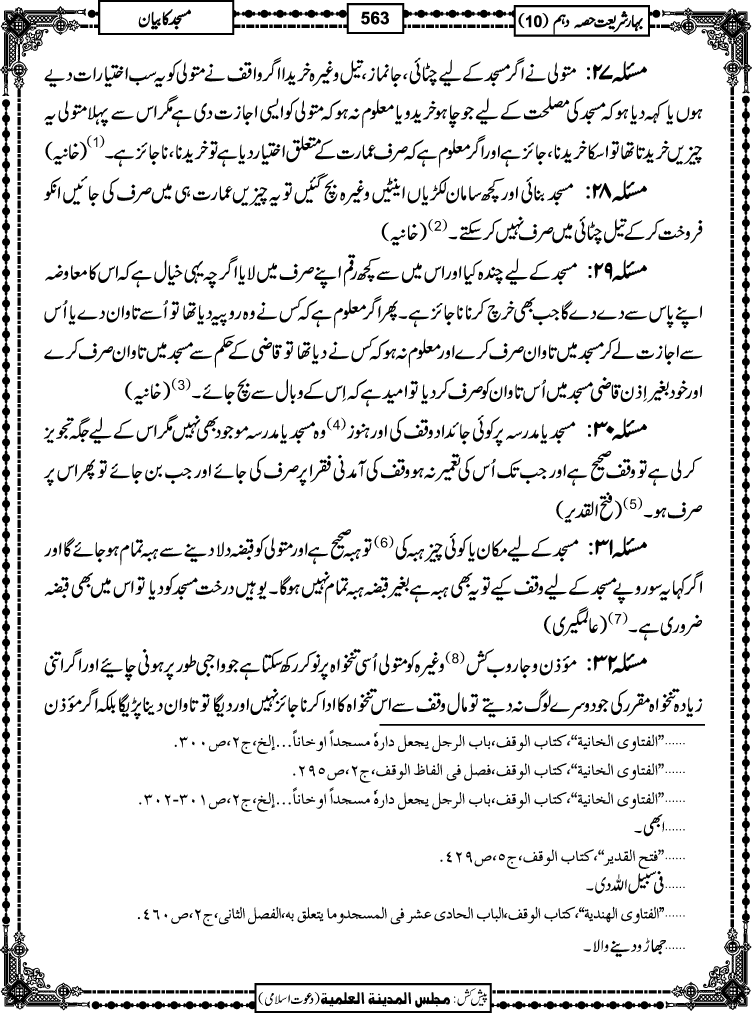 بہار شریعت حصہ دہم (10)
563
مسجد کا بیان
مسئلہ ۲۷: متولی نے اگر مسجد کے لیے چٹائی، جانماز، تیل وغیرہ خریدا اگر واقف نے متولی کو یہ سب اختیارات دیے
ہوں یا کہہ دیا ہو کہ مسجد کی مصلحت کے لیے جو چاہو خریدو یا معلوم نہ ہو کہ متولی کو ایسی اجازت دی ہے مگر اس سے پہلا متولی یہ
چیزیں خریدتا تھا تو اسکا خریدنا، جائز ہے اور اگر معلوم ہے کہ صرف عمارت کے متعلق اختیار دیا ہے تو خریدنا، ناجائز ہے۔(1) (خانیہ)
مسئلہ ۲۸: مسجد بنائی اور کچھ سامان لکڑیاں اینٹیں وغیرہ بچ گئیں تو یہ چیزیں عمارت ہی میں صرف کی جائیں انکو
فروخت کرکے تیل چٹائی میں صرف نہیں کرسکتے۔(2) (خانیہ)
مسئلہ ۲۹: مسجد کے لیے چندہ کیا اور اس میں سے کچھ رقم اپنے صرف میں لایا اگرچہ یہی خیال ہے کہ اس کا معاوضہ
اپنے پاس سے دے دے گا جب بھی خرچ کرنا ناجائز ہے۔ پھر اگر معلوم ہے کہ کس نے وہ روپیہ دیا تھا تو اُسے تاوان دے یا اُس
سے اجازت لے کر مسجد میں تاوان صرف کرے اور معلوم نہ ہو کہ کس نے دیا تھا تو قاضی کے حکم سے مسجد میں تاوان صرف کرے
اور خود بغیر اِذن قاضی مسجد میں اُس تاوان کو صرف کردیا تو امید ہے کہ اِس کے وبال سے بچ جائے۔(3) (خانیہ)
مسئلہ ۳۰: مسجد یا مدرسہ پر کوئی جائداد وقف کی اور ہنوز(4) وہ مسجد یا مدرسہ موجود بھی نہیں مگر اس کے لیے جگہ تجویز
کرلی ہے تو وقف صحیح ہے اور جب تک اُس کی تعمیر نہ ہو وقف کی آمدنی فقرا پر صرف کی جائے اور جب بن جائے تو پھر اس پر
صرف ہو۔(5) (فتح القدیر)
مسئلہ ۳۱: مسجد کے لیے مکان یا کوئی چیز ہبہ کی(6) تو ہبہ صحیح ہے اور متولی کو قبضہ دلا دینے سے ہبہ تمام ہوجائے گا اور
اگر کہا یہ سو روپے مسجد کے لیے وقف کیے تو یہ بھی ہبہ ہے بغیر قبضہ ہبہ تمام نہیں ہوگا۔ یوہیں درخت مسجد کو دیا تو اس میں بھی قبضہ
ضروری ہے۔(7) (عالمگیری)
مسئلہ ۳۲: مؤذن و جاروب کش(8) وغیرہ کو متولی اُسی تنخواہ پر نوکر رکھ سکتا ہے جو واجبی طور پر ہونی چاہیے اور اگر اتنی
زیادہ تنخواہ مقرر کی جو دوسرے لوگ نہ دیتے تو مال وقف سے اس تنخواہ کا ادا کرنا جائز نہیں اور دیگا تو تاوان دینا پڑیگا بلکہ اگر مؤذن
......”الفتاوی الخانیة“،کتاب الوقف،باب الرجل یجعل دارہٗ مسجداً اوخاناً...إلخ،ج٢،ص٣٠٠.
......”الفتاوی الخانیة“،کتاب الوقف،فصل فی الفاظ الوقف،ج٢،ص٢٩٥.
......”الفتاوی الخانیة“،کتاب الوقف،باب الرجل یجعل دارہٗ مسجداً اوخاناً...إلخ،ج٢،ص٣٠١-٣٠٢.
......ابھی۔
......”فتح القدیر“،کتاب الوقف،ج٥،ص٤٢٩.
......فی سبیل اللہ دی۔
......”الفتاوی الهندیة“،کتاب الوقف،الباب الحادی عشر فی المسجد وما یتعلق به،الفصل الثانی،ج٢،ص٤٦٠.
......جھاڑو دینے والا۔
پیش کش: مجلس المدینة العلمیة (دعوت اسلامی)